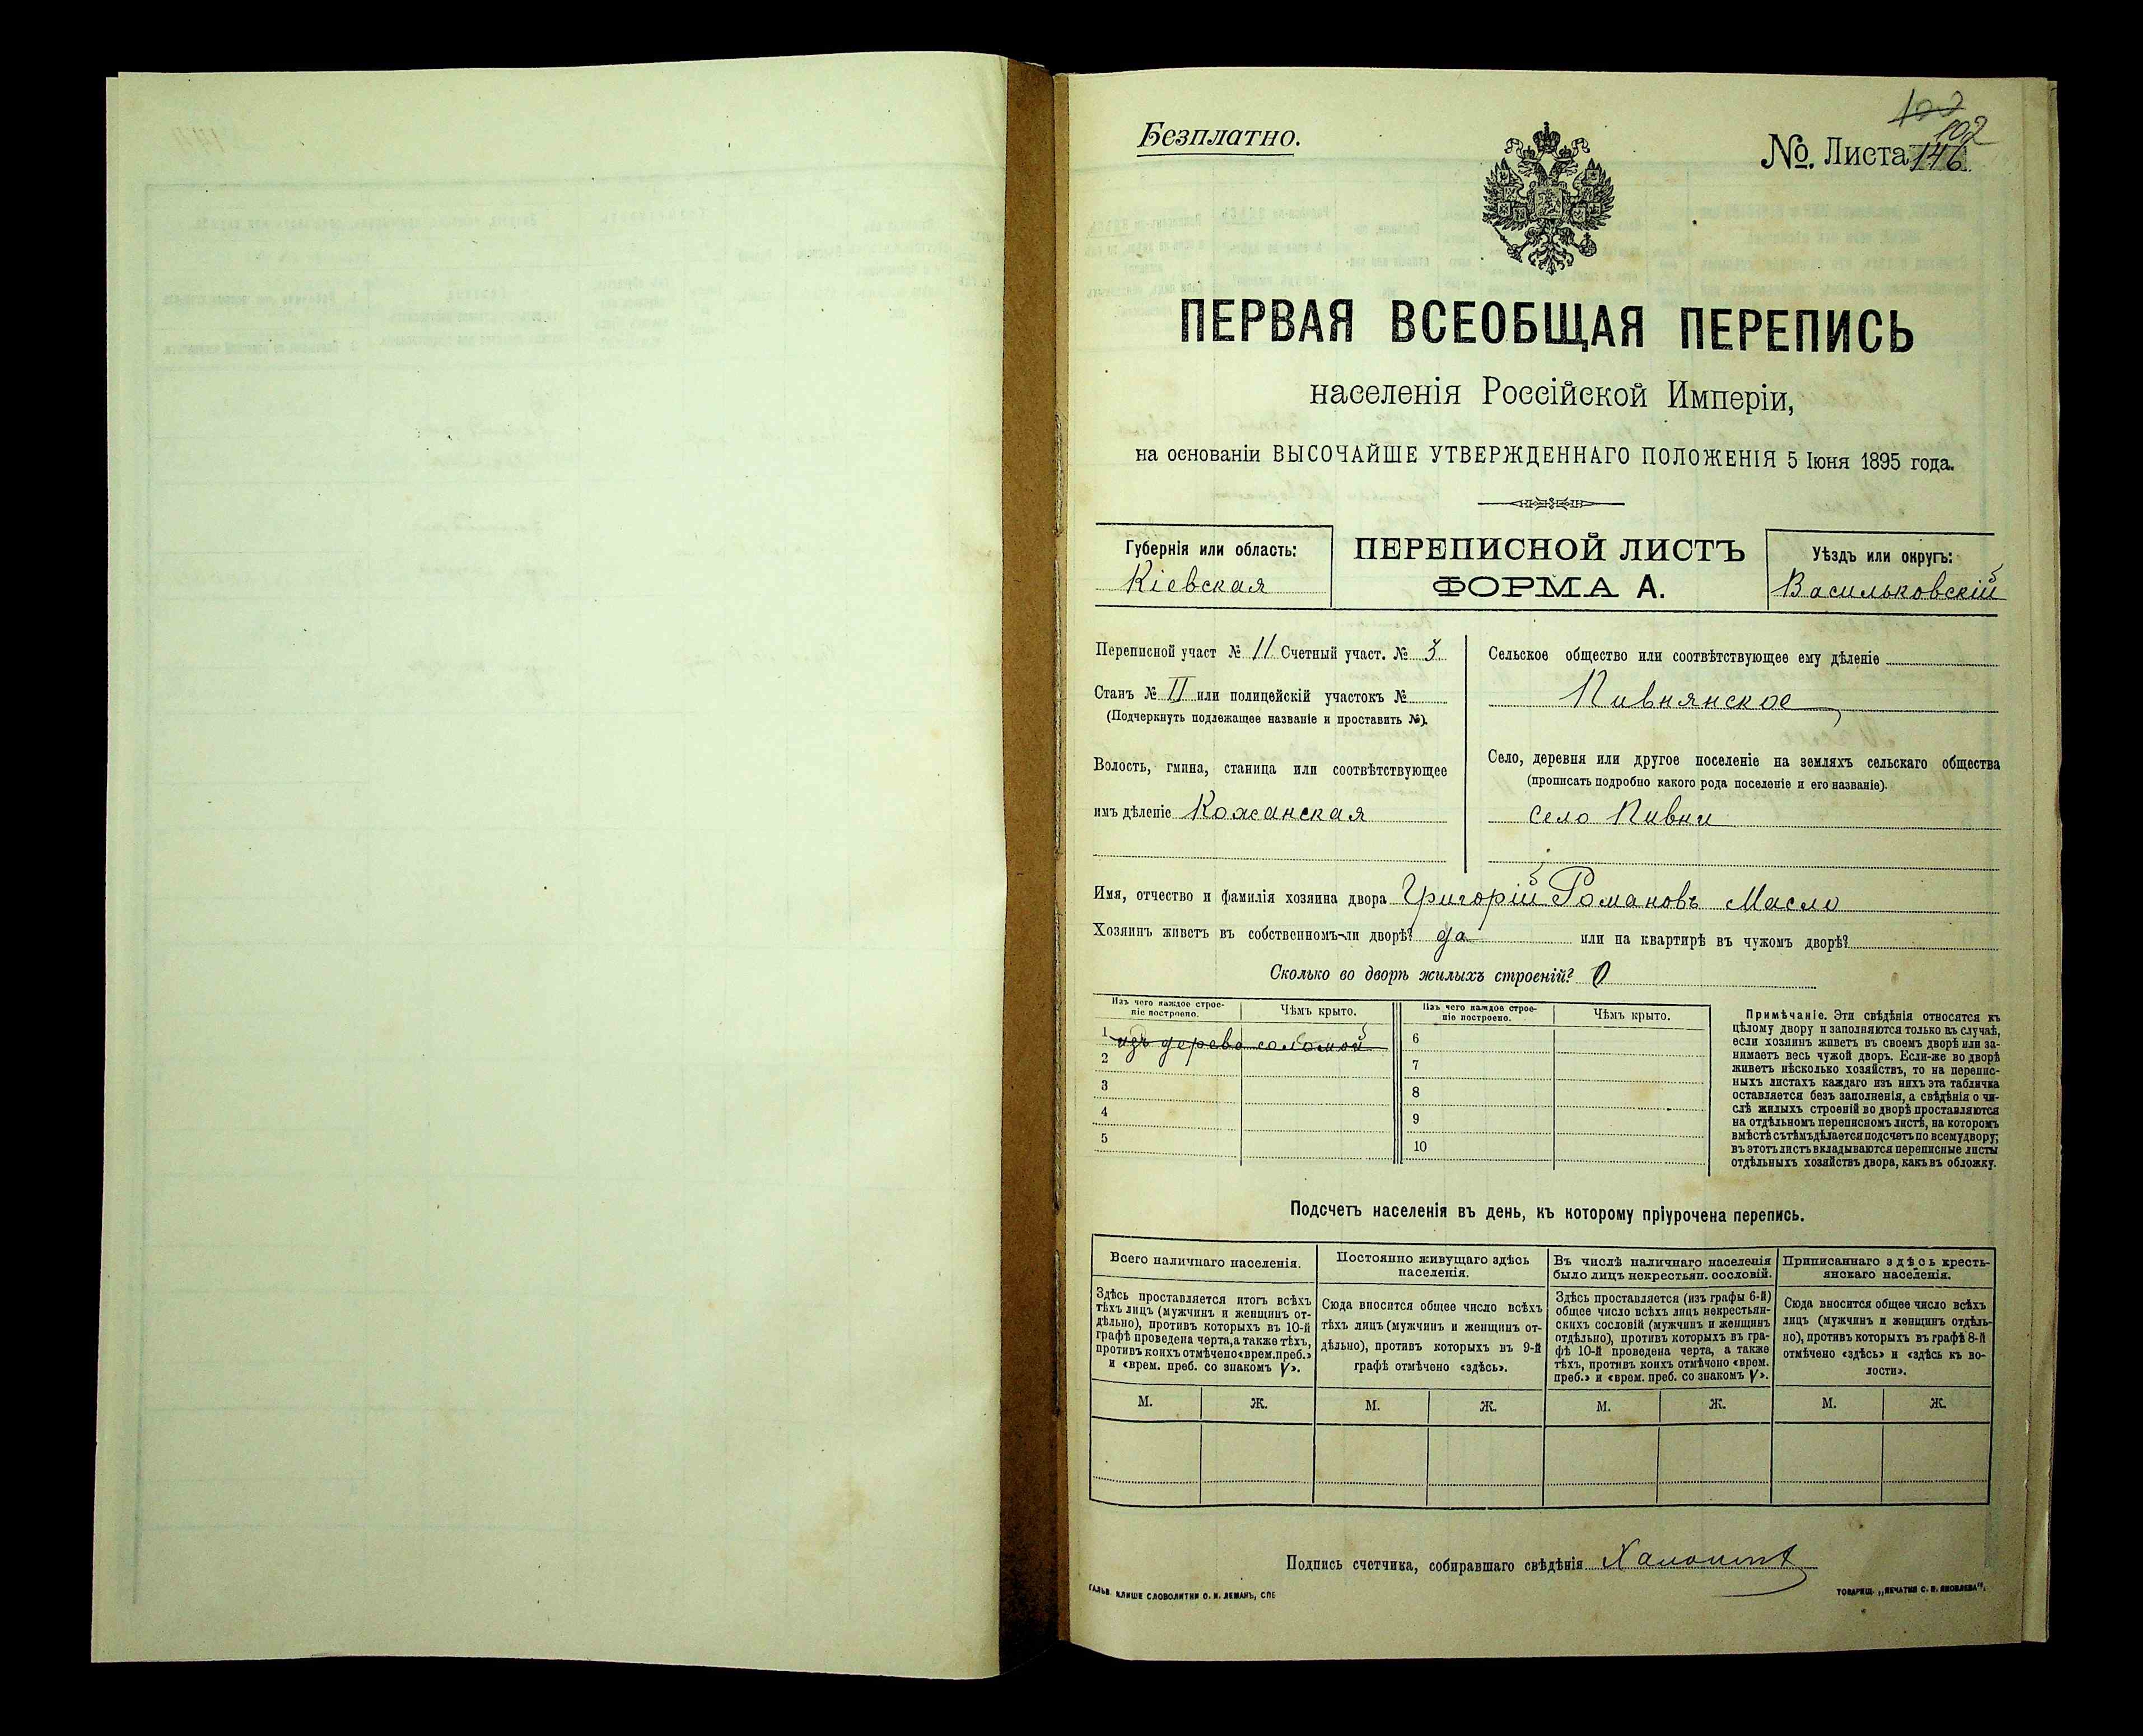 Безплатно.
100
102
№. Листа 146
ПЕРВАЯ ВСЕОБЩАЯ ПЕРЕПИСЬ
населенія Россійской Имперіи,
на основаніи ВЫСОЧАЙШЕ УТВЕРЖДЕННАГО ПОЛОЖЕНІЯ 5 Іюня 1895 года.
Губернія или область:
Кіевская
ПЕРЕПИСНОЙ ЛИСТЪ
ФОРМА А.
Уѣздъ или округъ:
Васильковскій
Переписной участ № 11 Счетный участ. № 3
Станъ № II или полицейскій участокъ №
(Подчеркнуть подлежащее названіе и проставить №).
Волость, гмина, станица или соотвѣтствующее
имъ дѣленіе Кожанская
Сельское общество или соотвѣтствующее ему дѣленіе
Пивнянское
Село, деревня или другое поселеніе на земляхъ сельскаго общества
(прописать подробно какого рода поселеніе и его названіе).
село Пивни
Имя, отчество и фамилія хозяина двора Григорій Романовъ Масло
Хозяинъ живетъ въ собственномъ-ли дворѣ? да или на квартирѣ въ чужомъ дворѣ?
Сколько во дворѣ жилыхъ строеній? 0
Изъ чего каждое строе-
ніе построено.
Чѣмъ крыто.
1 изъ дерева соломой
2
3
4
5
Изъ чего каждое строе-
ніе построено.
Чѣмъ крыто.
6
7
8
9
10
Примѣчаніе. Эти свѣдѣнія относятся къ
цѣлому двору и заполняются только въ случаѣ,
если хозяинъ живетъ въ своемъ дворѣ или за-
нимаетъ весь чужой дворъ. Если-же во дворѣ
живетъ нѣсколько хозяйствъ, то на перепис-
ныхъ листахъ каждаго изъ нихъ эта табличка
оставляется безъ заполненія, а свѣдѣнія о чи-
слѣ жилыхъ строеній во дворѣ проставляются
на отдѣльномъ переписномъ листѣ, на которомъ
вмѣстѣ съ тѣмъ дѣлается подсчетъ по всему двору;
въ этотъ листъ вкладываются переписные листы
отдѣльныхъ хозяйствъ двора, какъ въ обложку.
Подсчетъ населенія въ день, къ которому пріурочена перепись.
Всего наличнаго населенія.
Здѣсь проставляется итогъ всѣхъ
тѣхъ лицъ (мужчинъ и женщинъ от-
дѣльно), противъ которыхъ въ 10-й
графѣ проведена черта, а также тѣхъ,
противъ коихъ отмѣчено «врем. преб.»
и «врем. преб. со знакомъ V».
М. Ж.
Постоянно живущаго здѣсь
населенія.
Сюда вносится общее число всѣхъ
тѣхъ лицъ (мужчинъ и женщинъ от-
дѣльно), противъ которыхъ въ 9-й
графѣ отмѣчено «здѣсь».
М. Ж.
Въ числѣ наличнаго населенія
было лицъ некрестьян. сословій.
Здѣсь проставляется (изъ графы 6-й)
общее число всѣхъ лицъ некрестьян-
скихъ сословій (мужчинъ и женщинъ
отдѣльно), противъ которыхъ въ гра-
фѣ 10-й проведена черта, а также
тѣхъ, противъ коихъ отмѣчено «врем.
преб.» и «врем. преб. со знакомъ V».
М. Ж.
Приписаннаго здѣсь кресть-
янскаго населенія.
Сюда вносится общее число всѣхъ
лицъ (мужчинъ и женщинъ отдѣль-
но), противъ которыхъ въ графѣ 8-й
отмѣчено «здѣсь» и «здѣсь къ во-
лости».
М. Ж.
Подпись счетчика, собиравшаго свѣдѣнія
ГАЛЬВ. КЛИШЕ СЛОВОЛИТНИ О. И. ЛЕМАНЪ, СПБ
ТОВАРИЩ. „ПЕЧАТНЯ С. П. ЯКОВЛЕВА“.